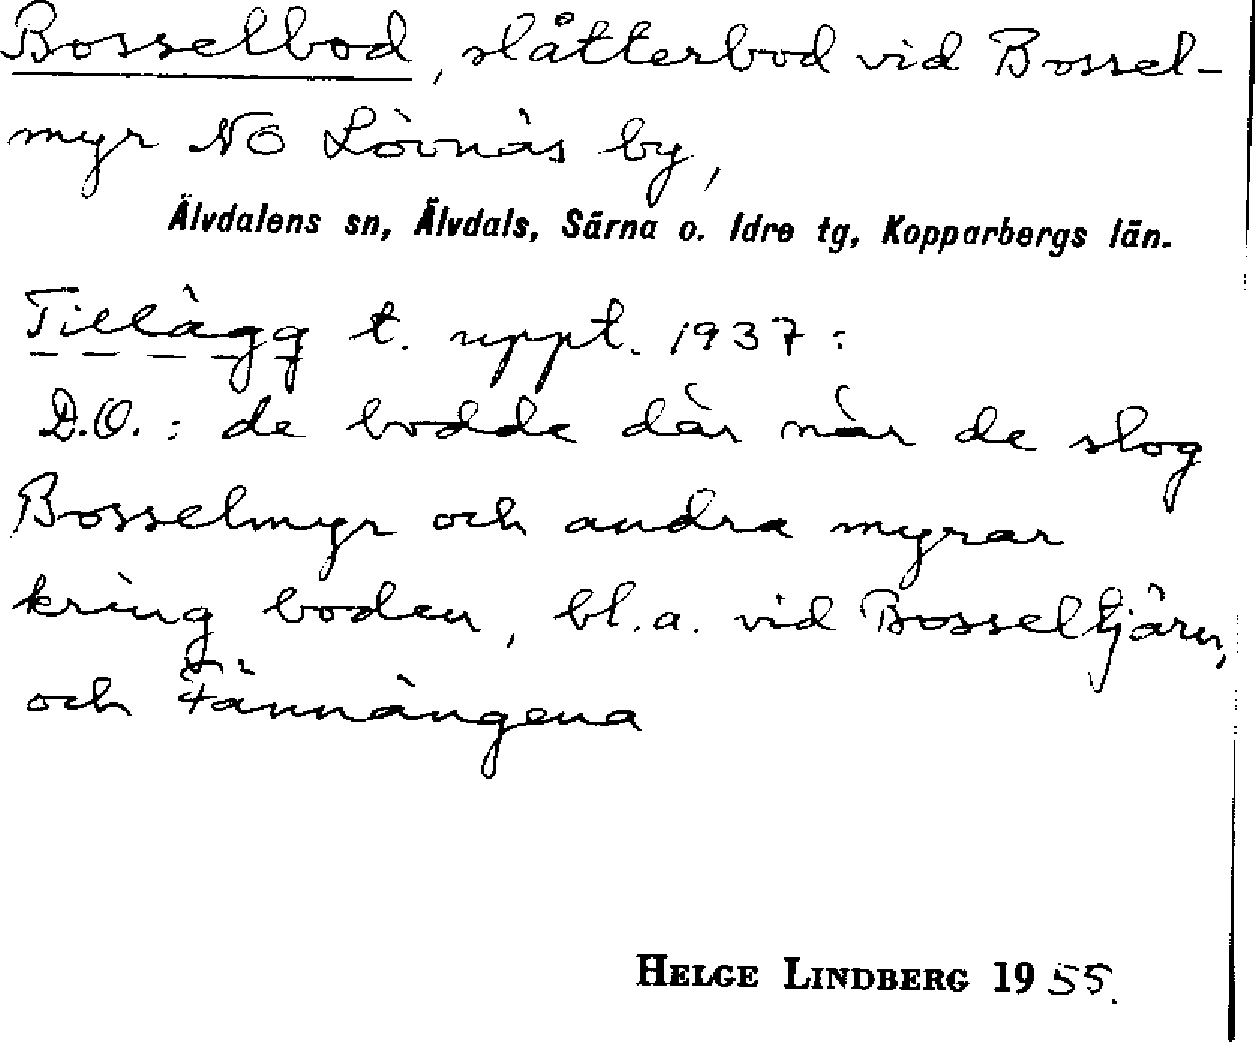 Bosselbod, slåtterbod vid Bossel-
myr NO Lövnäs by,
Älvdalens sn, Älvdals, Särna o. Idre tg, Kopparbergs län.
Tillägg t. uppt. 1937:
D.O.: de bodde där när de slog
Bosselmyr och andra myrar
kring boden, bl.a. vid Bosseltjärn,
och
HELGE LINDBERG 1955.